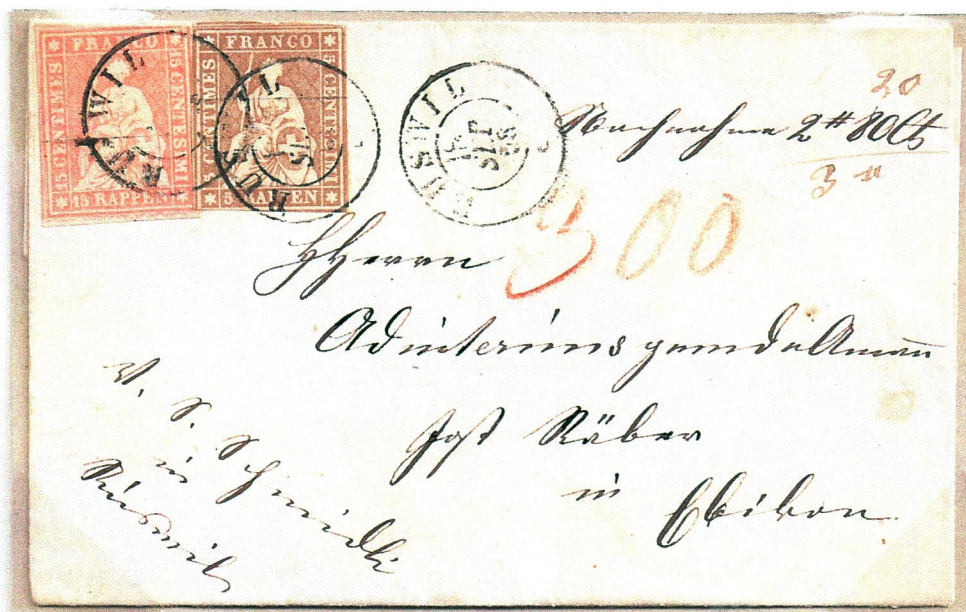 FRANCO
15 CENTIMES
15 CENTESIMI
15 RAPPEN
FRANCO
5 CENTIMES
5 CENTESIMI
5 RAPPEN
RUSWIL
RUSWIL
RUSWIL
20
Nachnahme 2 # 80 Cts
3 "
300
HHerrn
Adinterims gemdeAman
Jost Räber
in
Ebikon
V. S. Schmidli
in
Ruswil